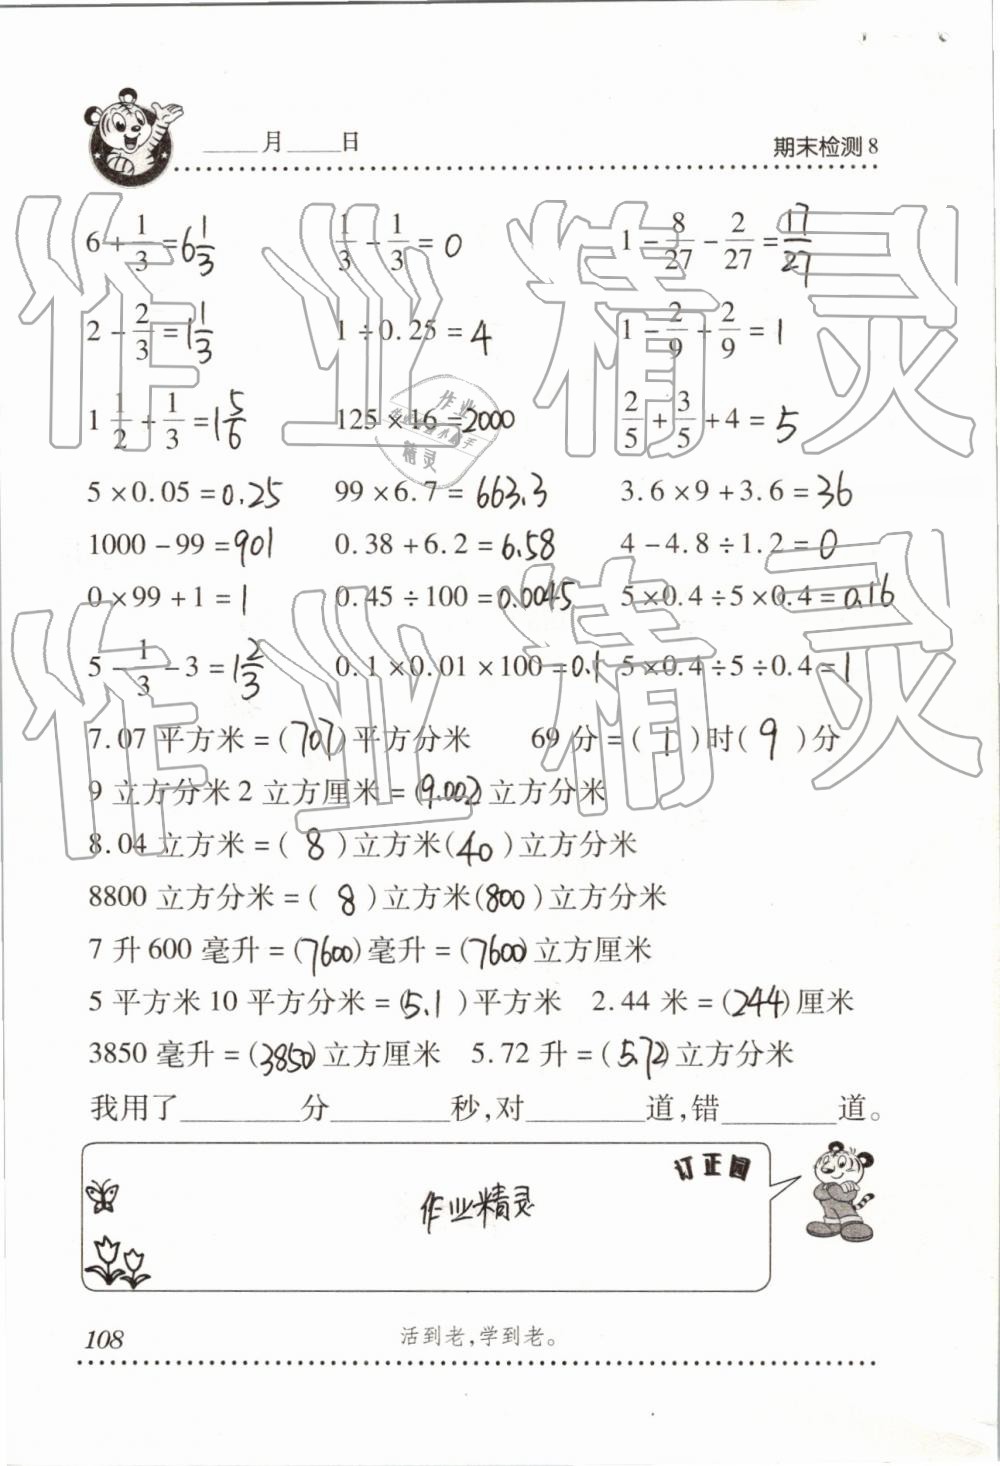 ____月____日 期末检测 8
6 + 1/3 = 6 1/3  1/3 - 1/3 = 0  1 - 8/27 - 2/27 = 17/27
2 - 2/3 = 1 1/3  1 ÷ 0.25 = 4  1 - 2/9 + 2/9 = 1
1 1/2 + 1/3 = 1 5/6  125 × 16 = 2000  2/5 + 3/5 + 4 = 5
5 × 0.05 = 0.25  99 × 6.7 = 663.3  3.6 × 9 + 3.6 = 36
1000 - 99 = 901  0.38 + 6.2 = 6.58  4 - 4.8 ÷ 1.2 = 0
0 × 99 + 1 = 1  0.45 ÷ 100 = 0.0045  5 × 0.4 ÷ 5 × 0.4 = 0.16
5 - 1/3 - 3 = 1 2/3  0.1 × 0.01 × 100 = 0.1  5 × 0.4 ÷ 5 ÷ 0.4 = 1
7.07 平方米 = (707)平方分米  69 分 = ( 1 )时( 9 )分
9 立方分米 2 立方厘米 = (9.002)立方分米
8.04 立方米 = ( 8 )立方米(40)立方分米
8800 立方分米 = ( 8 )立方米(800)立方分米
7 升 600 毫升 = (7600)毫升 = (7600)立方厘米
5 平方米 10 平方分米 = (5.1)平方米  2.44 米 = (244)厘米
3850 毫升 = (3850)立方厘米  5.72 升 = (5.72)立方分米
我用了________分________秒,对________道,错________道。
订正园
作业精灵
108 活到老,学到老。
作业精灵
作业精灵
作业
精灵